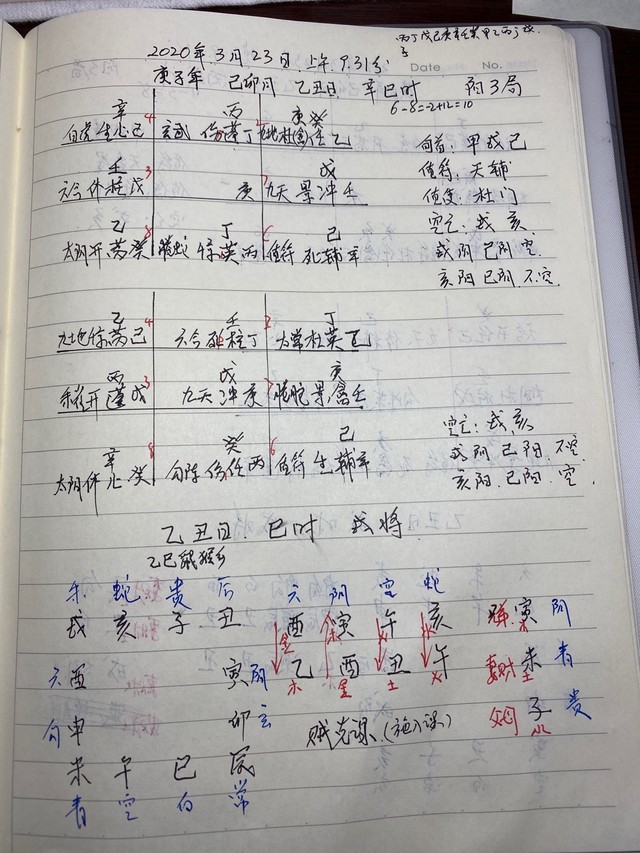 丙丁戊己庚辛壬癸甲乙丙丁戊
子
Date No.
2020年3月23日上午9.31分
庚子年 己卯月 乙丑日 辛巳时 阳3局
6-8=-2+12=10
辛 丙 庚癸
白虎生心己 玄武伤蓬丁 九地杜禽任乙
旬首:甲戌己
壬 戊
六合休柱戊 庚 九天景冲壬
值符:天辅
值使:杜门
乙 丁 己
太阴开芮癸 螣蛇惊英丙 值符死辅辛
空亡:戌亥
戌阴已阴空
亥阳已阴不空
乙 壬 丁
九地惊芮己 六合死柱丁 太常杜英乙
丙 戊 庚
朱雀开蓬戊 九天冲庚 螣蛇景禽壬
辛 癸 己
太阴休心癸 勾陈伤任丙 值符生辅辛
空亡:戌亥
戌阴已阳不空
亥阳已阳空
乙丑日 巳时 戌将
乙己鼠猴乡
朱 蛇 贵 后 六 阴 空 蛇
戌 亥 子 丑 酉 寅 午 亥 寅 阴
六 酉 寅 阴 乙 酉 丑 午 妻财 未 青
金 木 火 水
木 金 土 火
勾 申 卯 玄 贼克课(涉入课) 父母 子 贵
未 午 巳 辰
青 空 白 常